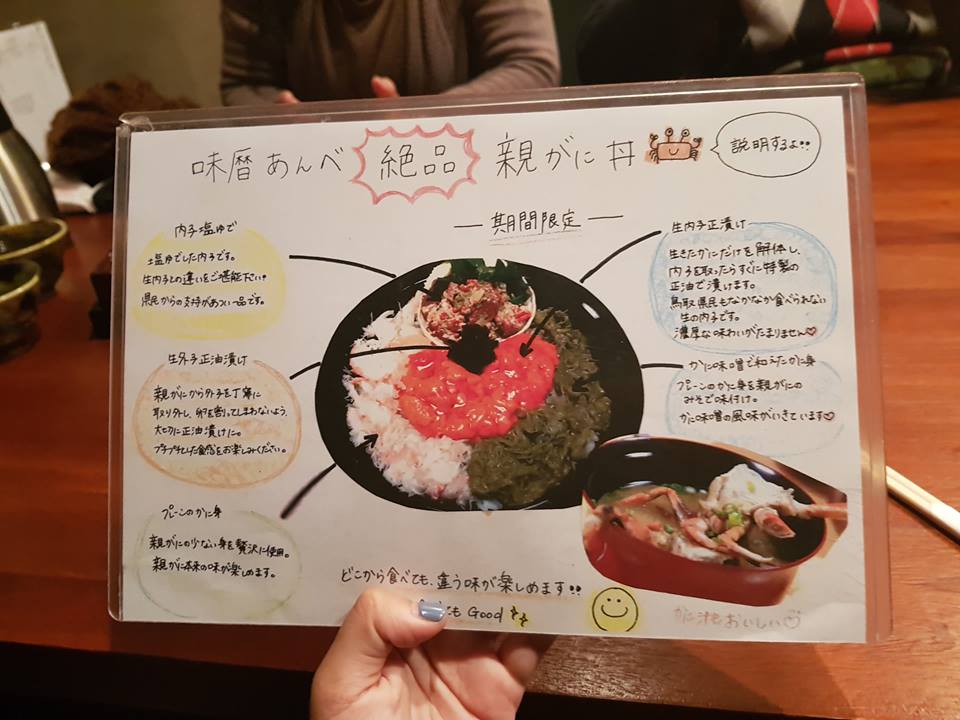 味暦あんべ 絶品 親がに丼
説明するよ!!
期間限定
内子塩ゆで
塩ゆでした内子です。
生内子との違いをご堪能下さい!
県民からの支持があつい一品です。
生外子正油漬け
親がにから外子を丁寧に
取り外し、卵を割ってしまわないよう、
大切に正油漬けた。
プチプチした食感をお楽しみください。
プレーンのかに身
親がにの少ない身を贅沢に使用。
親がに本来の味が楽しめます。
生内子正漬け
生きたかにだけを解体し、
内子を取ったらすぐに特製の
正油で漬けます。
鳥取県民もなかなか食べられない
生の内子です。
濃厚な味わいがたまりません♡
かに味噌で和えたかに身
プレーンのかに身を親がにの
みそで味付け。
かに味噌の風味がいきています♡
どこから食べても、違う味が楽しめます!!
もGood
かに汁もおいしい